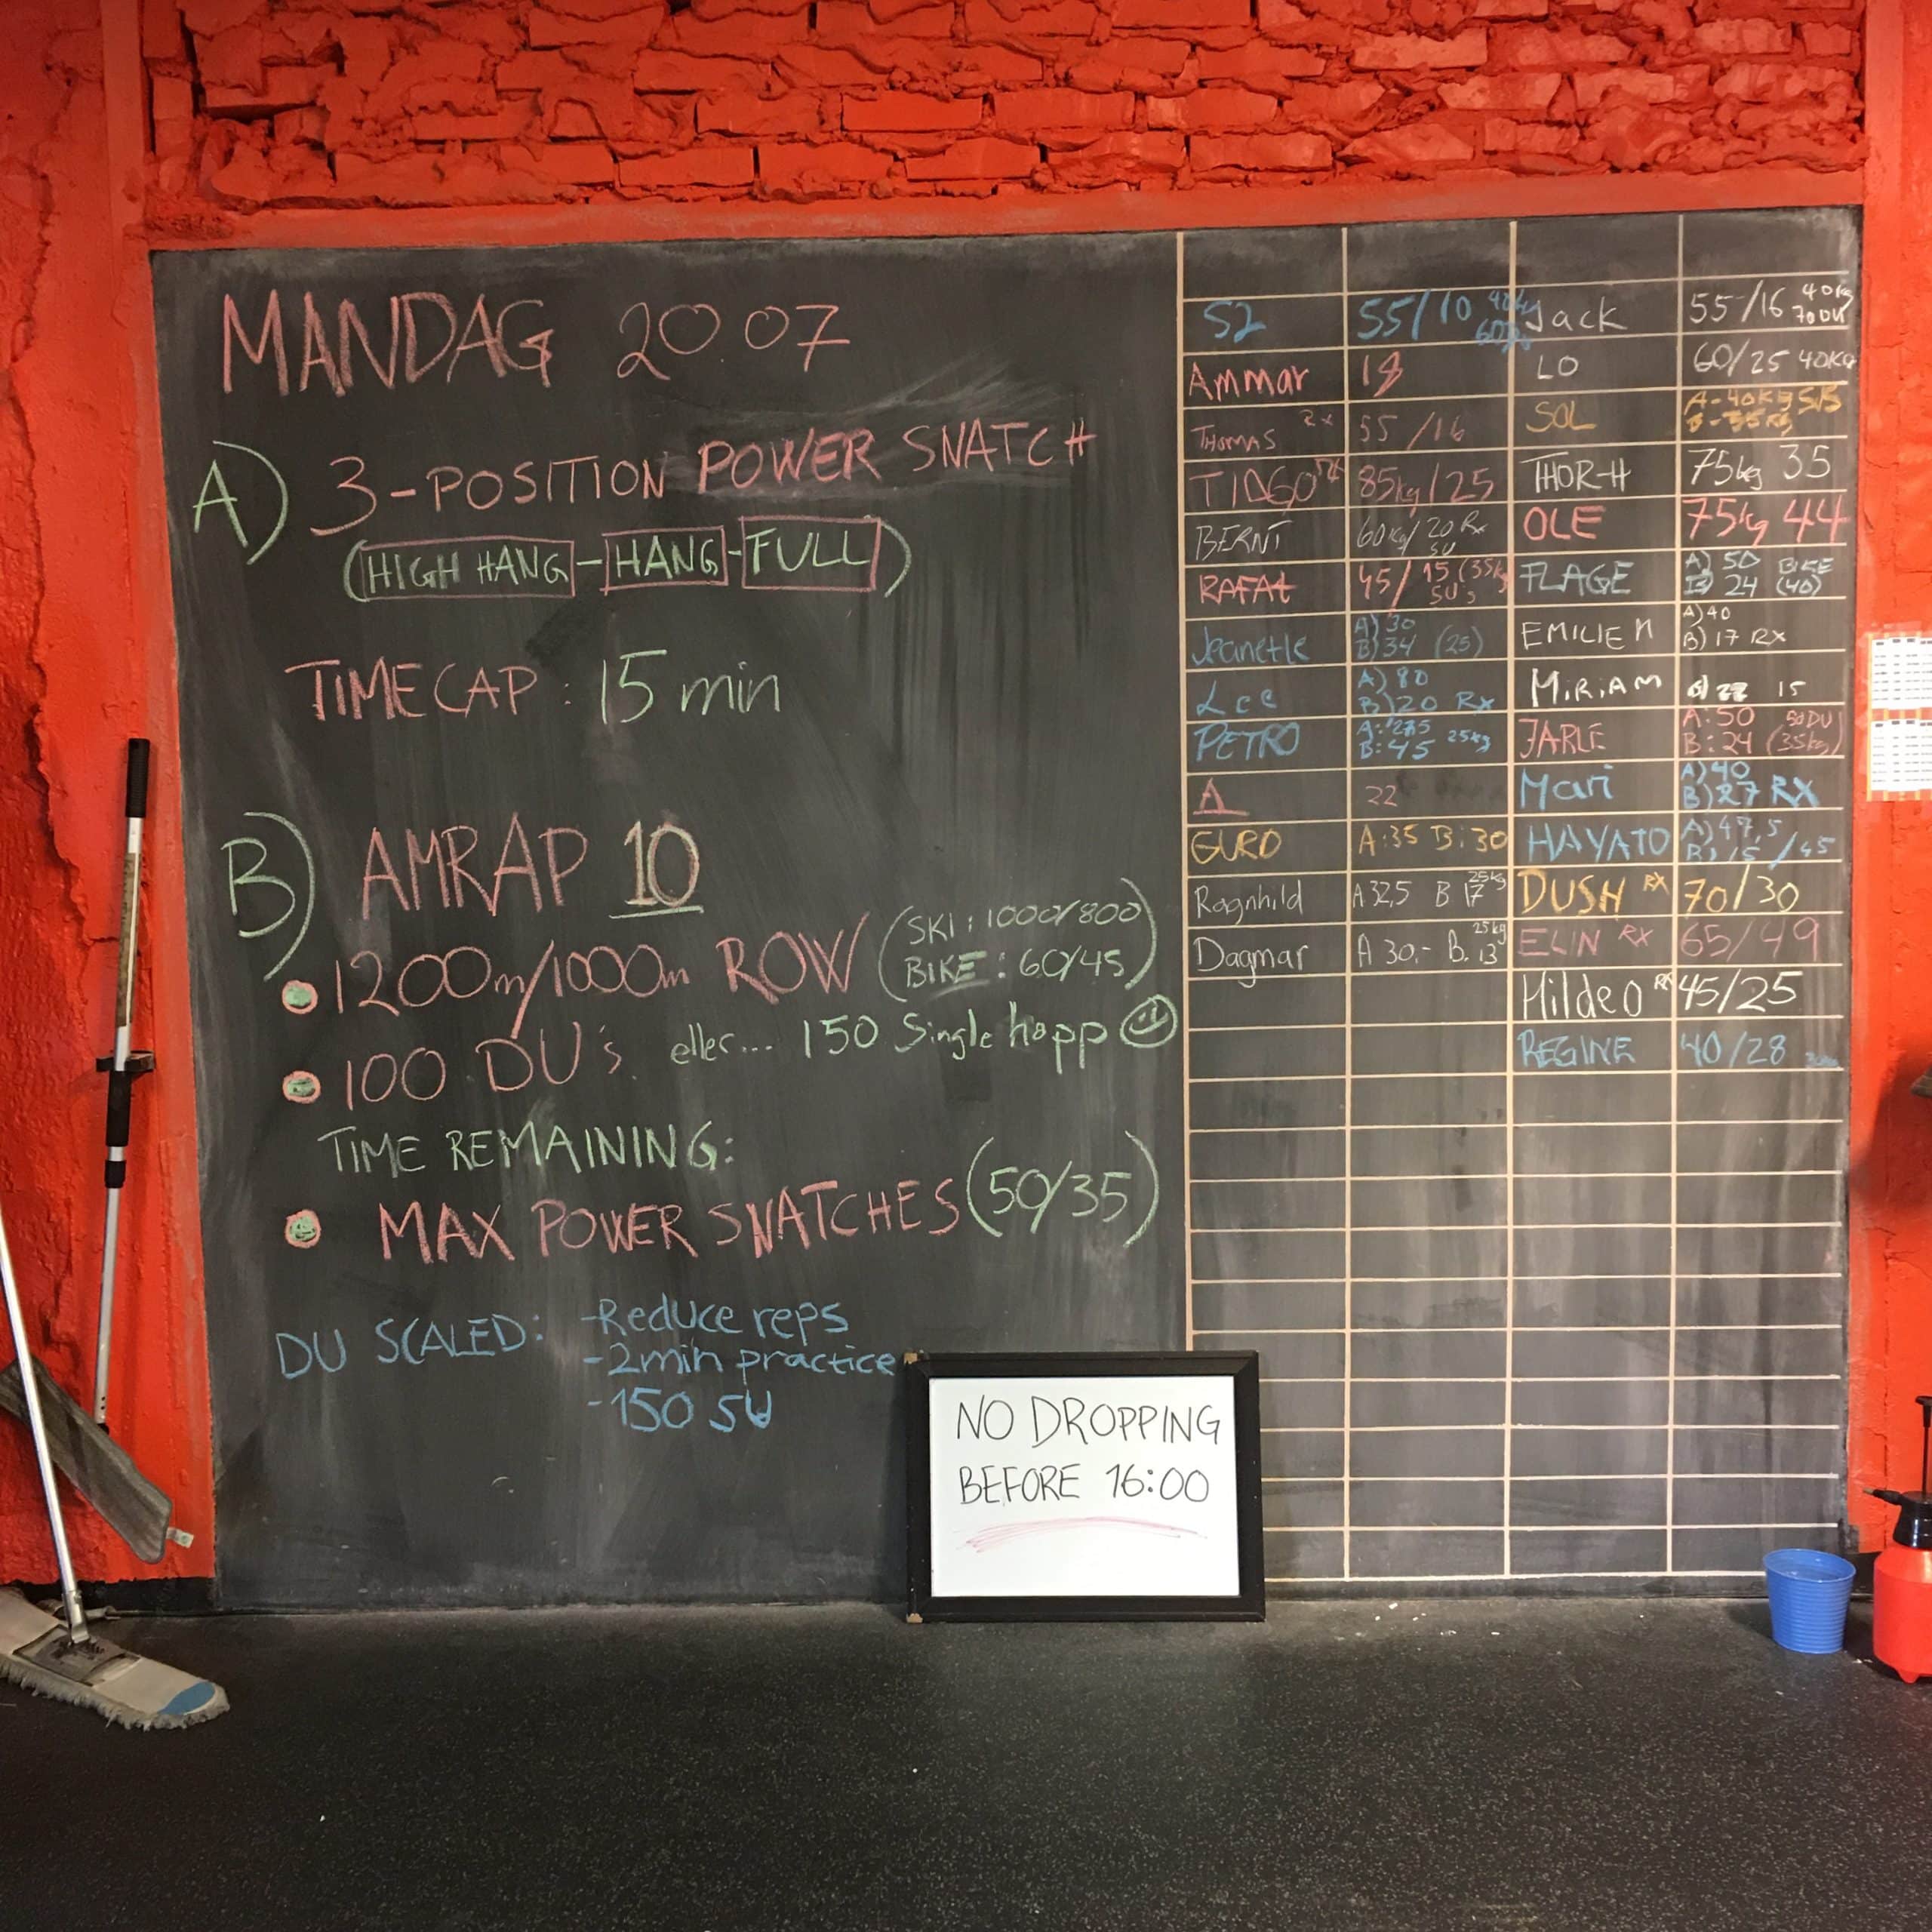 MANDAG 20.07
A) 3-POSITION POWER SNATCH
(HIGH HANG - HANG - FULL)
TIMECAP: 15 min
B) AMRAP 10
1200m/1000m ROW (SKI: 1000/800
BIKE: 60/45)
100 DU's eller... 150 Single hopp
TIME REMAINING:
MAX POWER SNATCHES (50/35)
DU SCALED: -Reduce reps
-2min practice
-150 SU
NO DROPPING
BEFORE 16:00
S2 55/10
Ammar
THOMAS 55/16
TIAGO 85kg/25
BERNT 60kg/20 Rx
SU
RAFAt 45/15 (35kg
SU's
Jeanette A) 30
B) 34 (25)
Lee A) 80
B) 20 Rx
PETRO
B: 45 25kg
22
GURO A:35 B:30
Ragnhild A 32,5 B 17 25kg
Dagmar A 30,- B. 13 25kg
Jack 55/16 40kg
70DU
LO 60/25 40KG
SOL A-40kg 5/5
B-35kg
THOR-H 75kg 35
OLE 75kg 44
FLAGE A) 50 BIKE
B) 24 (40)
EMILIE M A) 40
B) 17 RX
MiRiAM 15
JARLE A: 50 50DU
B: 24 (35kg)
Mari A) 40
B) 27 RX
HAYATO A) 47,5
B) 15/45
DUSH RX 70/30
ELIN RX 65/49
HildeO RX 45/25
REGINE 40/28